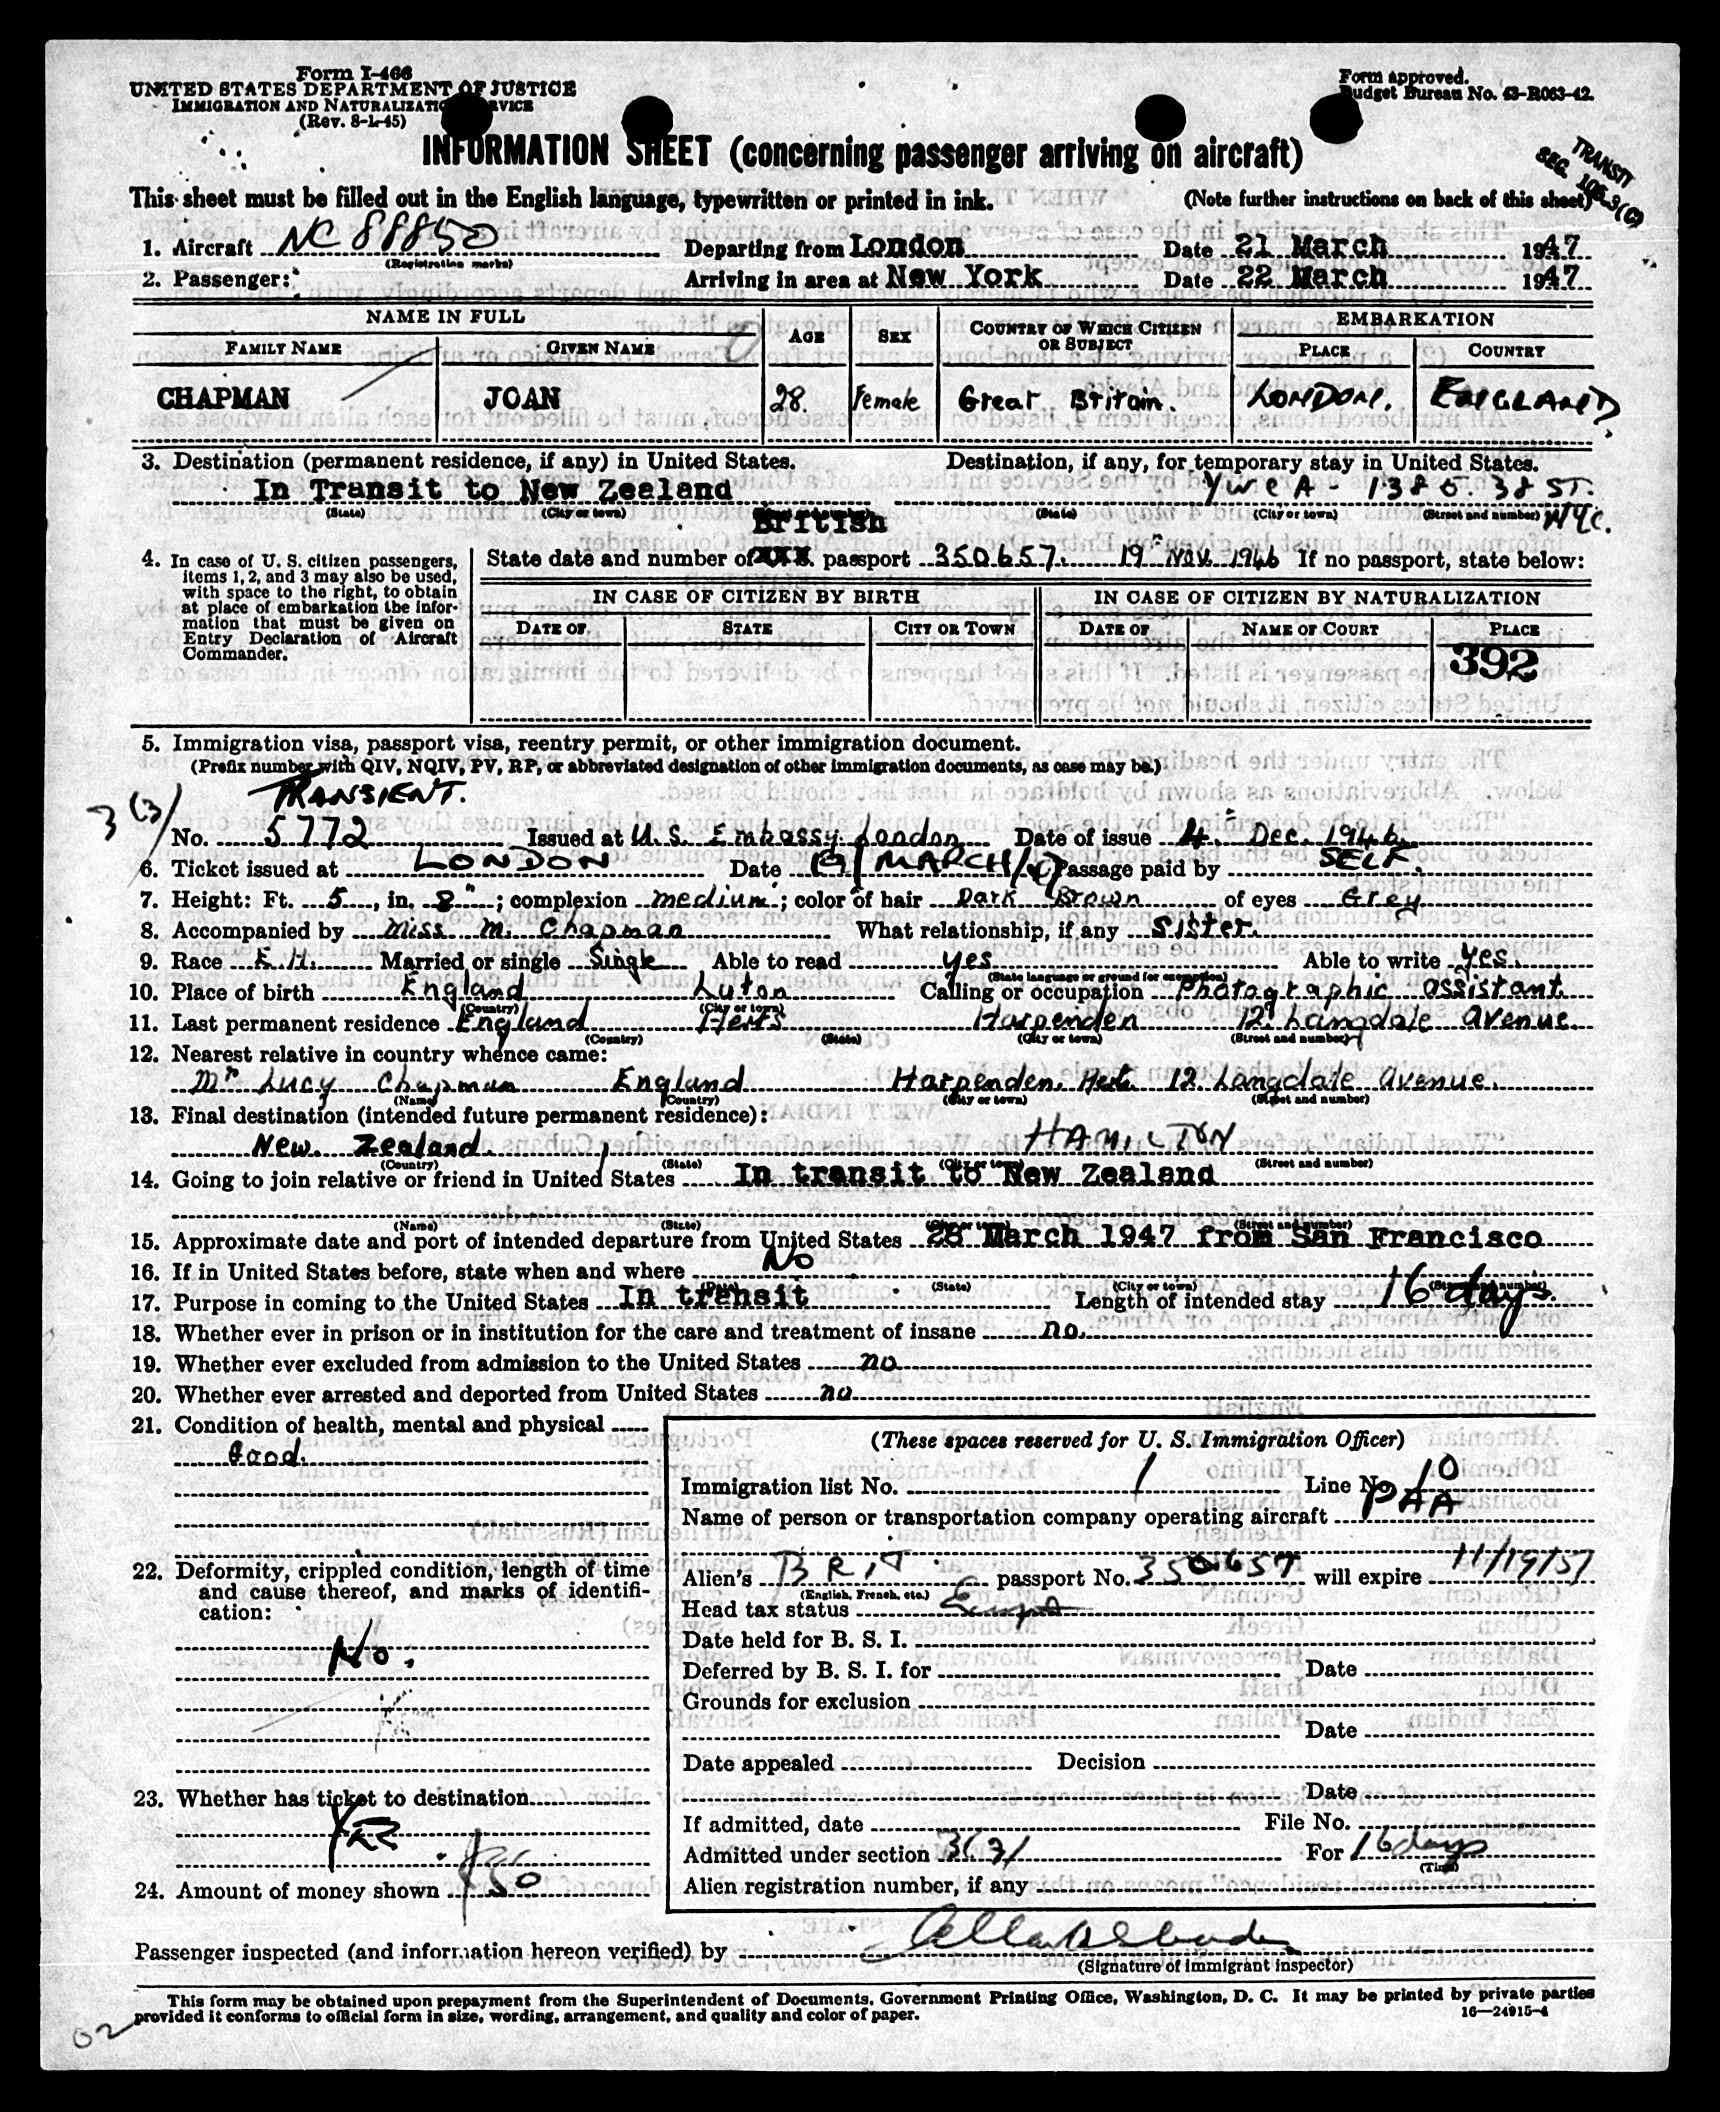 Form I-466
UNITED STATES DEPARTMENT OF JUSTICE
IMMIGRATION AND NATURALIZATION SERVICE
(Rev. 8-1-45)
Form approved.
Budget Bureau No. 43-R063-42.
INFORMATION SHEET (concerning passenger arriving on aircraft)
TRANSIT
SEC. 106.3(C)
This sheet must be filled out in the English language, typewritten or printed in ink. (Note further instructions on back of this sheet)
1. Aircraft NC 88850 Departing from London Date 21 March 1947
(Registration marks)
2. Passenger: Arriving in area at New York Date 22 March 1947
NAME IN FULL AGE SEX COUNTRY OF WHICH CITIZEN OR SUBJECT EMBARKATION
FAMILY NAME GIVEN NAME PLACE COUNTRY
CHAPMAN JOAN 28. Female Great Britain. LONDON. ENGLAND.
3. Destination (permanent residence, if any) in United States. Destination, if any, for temporary stay in United States.
In Transit to New Zealand YWCA - 138 E. 38 ST.
(State) (City or town) (Street and number) (State) (City or town) (Street and number) NYC.
British
4. In case of U. S. citizen passengers, items 1, 2, and 3 may also be used, with space to the right, to obtain at place of embarkation the information that must be given on Entry Declaration of Aircraft Commander.
State date and number of XXX passport 350657. 19 Nov. 1946 If no passport, state below:
IN CASE OF CITIZEN BY BIRTH IN CASE OF CITIZEN BY NATURALIZATION
DATE OF STATE CITY OR TOWN DATE OF NAME OF COURT PLACE
392
5. Immigration visa, passport visa, reentry permit, or other immigration document.
(Prefix number with QIV, NQIV, PV, RP, or abbreviated designation of other immigration documents, as case may be.)
TRANSIENT.
3(3)
No. 5772 Issued at U.S. Embassy London Date of issue 4. Dec. 1946.
6. Ticket issued at LONDON Date 19/MARCH/47 Passage paid by SELF.
7. Height: Ft. 5, in. 8"; complexion medium; color of hair Dark Brown of eyes Grey
8. Accompanied by Miss M. Chapman What relationship, if any Sister.
9. Race E.H. Married or single Single Able to read yes Able to write yes.
(State language or ground for exemption)
10. Place of birth England Luton Calling or occupation Photographic assistant
(Country) (City or town)
11. Last permanent residence England Herts Harpenden 12 Langdale Avenue
(Country) (State) (City or town) (Street and number)
12. Nearest relative in country whence came:
Mrs Lucy Chapman England Harpenden, Herts 12 Langdale Avenue.
(Name) (Country) (City or town) (Street and number)
13. Final destination (intended future permanent residence):
New Zealand. HAMILTON
(Country) (State) (City or town) (Street and number)
14. Going to join relative or friend in United States In transit to New Zealand
(Name) (State) (City or town) (Street and number)
15. Approximate date and port of intended departure from United States 28 March 1947 from San Francisco
16. If in United States before, state when and where No
(Date) (State) (City or town) (Street and number)
17. Purpose in coming to the United States In transit Length of intended stay 16 days.
18. Whether ever in prison or in institution for the care and treatment of insane no.
19. Whether ever excluded from admission to the United States no
20. Whether ever arrested and deported from United States no
21. Condition of health, mental and physical
Good.
22. Deformity, crippled condition, length of time and cause thereof, and marks of identification:
No.
23. Whether has ticket to destination
Yes
24. Amount of money shown $50
(These spaces reserved for U. S. Immigration Officer)
Immigration list No. 1 Line No. 10
Name of person or transportation company operating aircraft PAA
Alien's BRIT passport No. 350657 will expire 11/19/51
(English, French, etc.)
Head tax status Exempt
Date held for B. S. I.
Deferred by B. S. I. for Date
Grounds for exclusion
Date
Date appealed Decision
Date
If admitted, date File No.
Admitted under section 3(3) For 16 days
(Time)
Alien registration number, if any
Passenger inspected (and information hereon verified) by
(Signature of immigrant inspector)
This form may be obtained upon prepayment from the Superintendent of Documents, Government Printing Office, Washington, D. C. It may be printed by private parties
provided it conforms to official form in size, wording, arrangement, and quality and color of paper.
16—24915-4
02